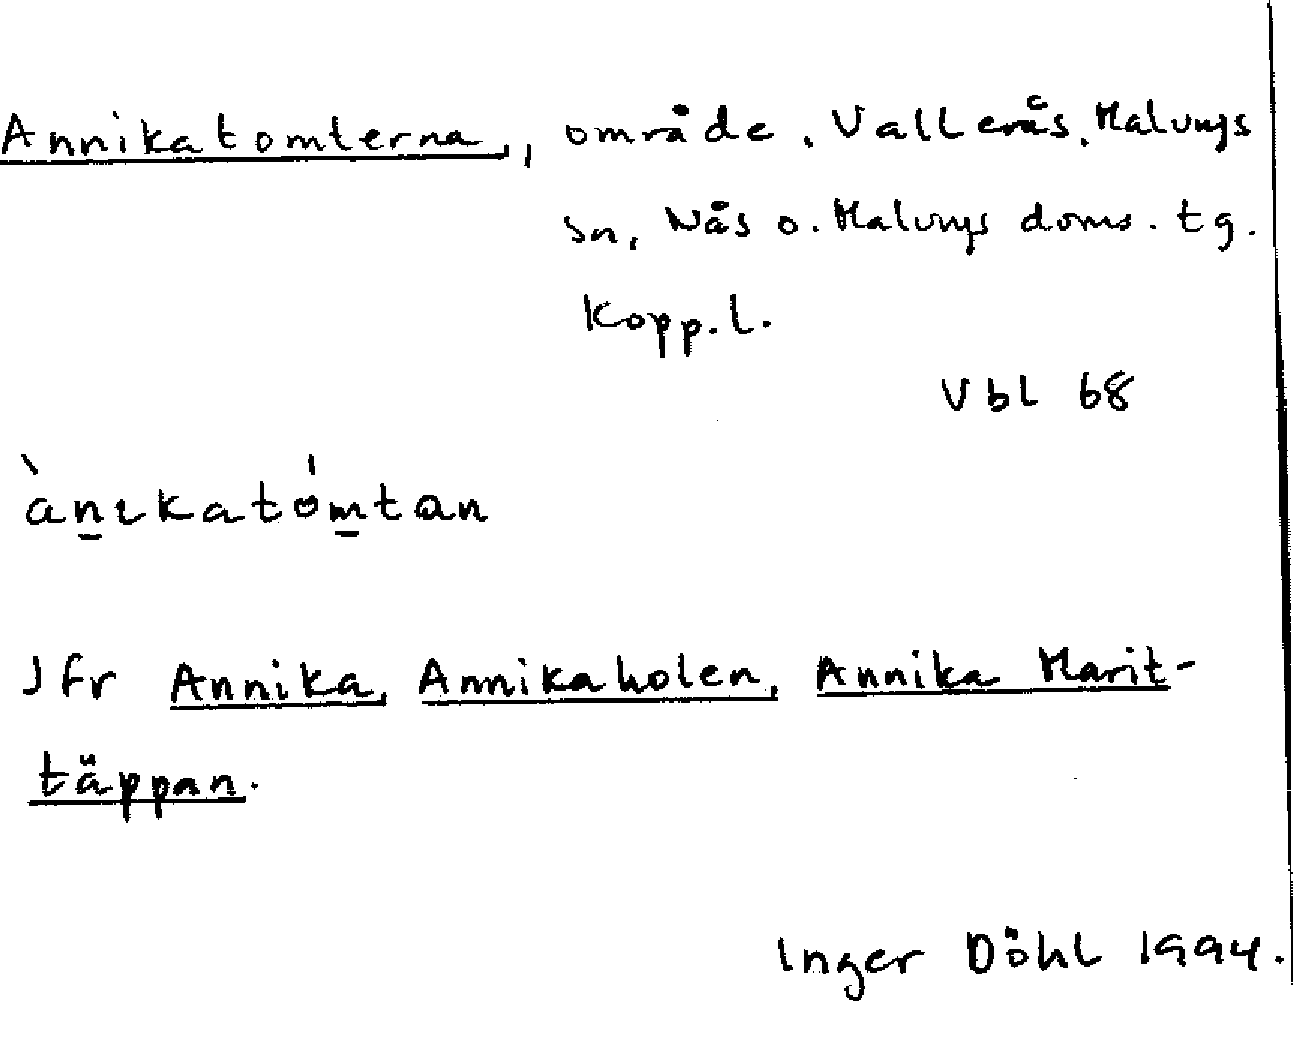 Annikatomterna, område, Vallerås, Malungs
sn, Nås o. Malungs doms. tg.
Kopp.l.
Vbl 68
ànɩkatómtan
Jfr Annika, Annikaholen, Annika Marit-
täppan.
Inger Döhl 1994.